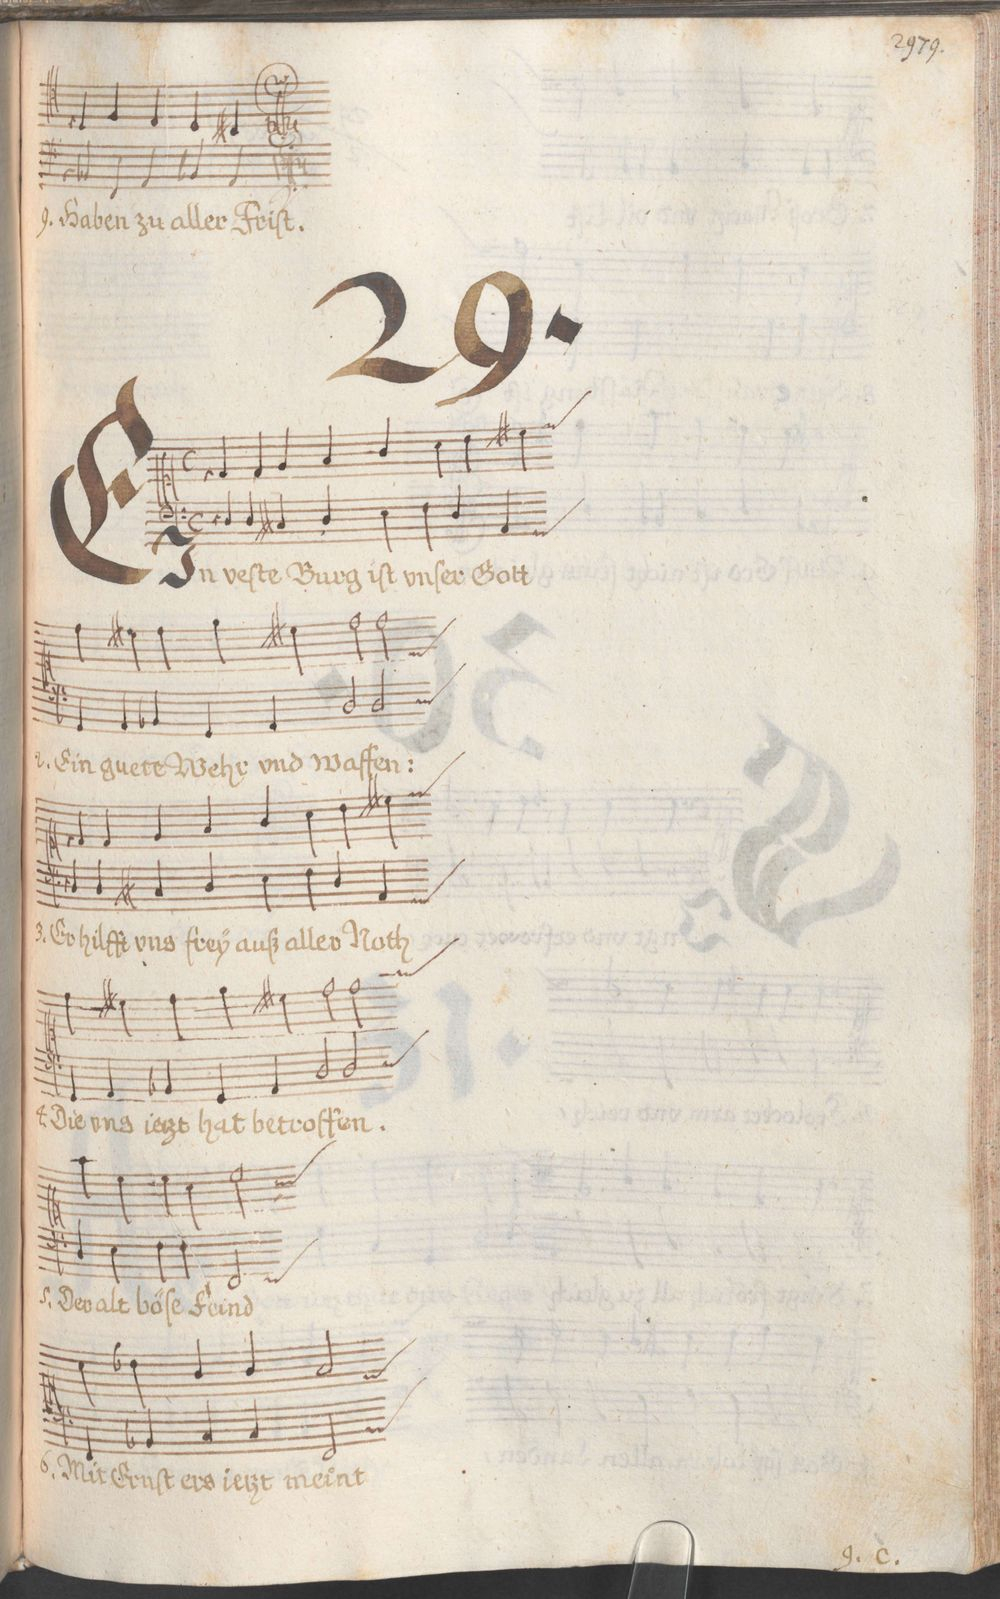 2979.
9. Haben zu aller Frist.
29.
EIn veste Burg ist vnser Gott
2. Ein guett Wehr vnd Waffen:
3. Er hilfft vns freÿ auß aller Noth
4. Die vns ietzt hat betroffen.
5. Der alt böse Feind
6. Mit Ernst ers ietzt meint
9. C.